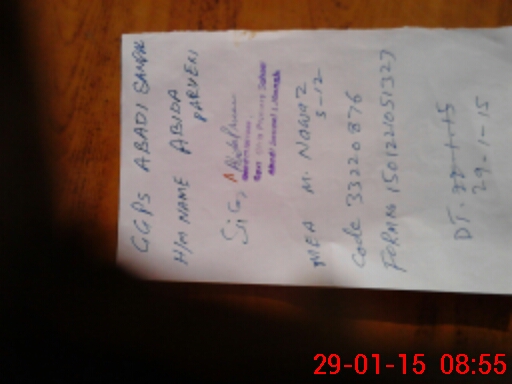 GGPS ABADI SANDAL
H/M NAME ABIDA
PARVEEN
Sig,
MEA M. NAWAZ
S-12
Code 33220876
FORM NO 1501221051327
DT.
29-1-15
29-01-15 08:55